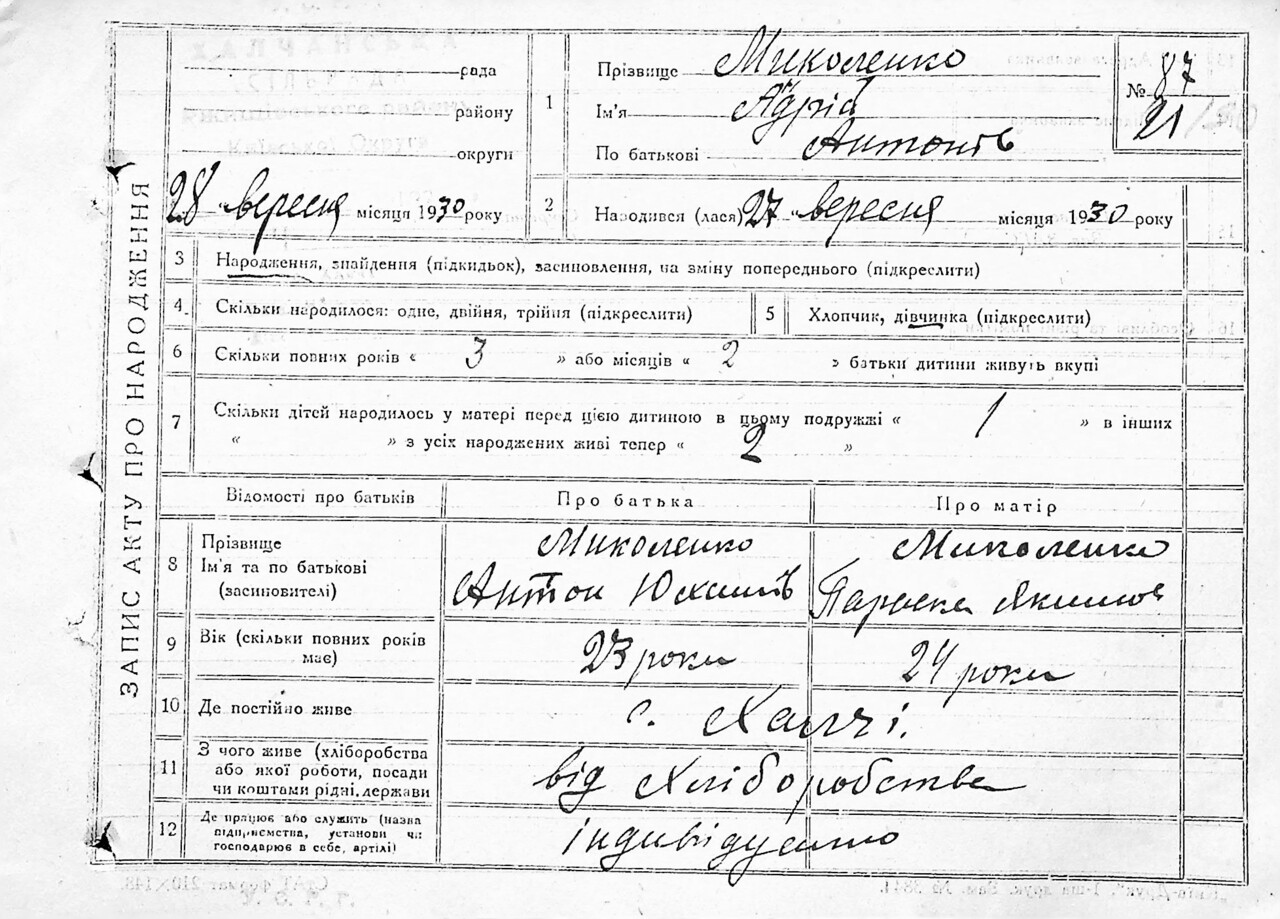 рада
району
округи
28 „ вересня місяця 1930 року
1 Прізвище Миколенко
Ім'я
По батькові Антонів
№ 87
21
2 Народився (лася) 27 „ вересня місяця 1930 року
ЗАПИС АКТУ ПРО НАРОДЖЕННЯ
3 Народження, знайдення (підкидьок), засиновлення, на зміну попереднього (підкреслити)
4 Скільки народилося: одне, двійня, трійня (підкреслити)
5 Хлопчик, дівчинка (підкреслити)
6 Скільки повних років « 3 » або місяців « 2 » батьки дитини живуть вкупі
7 Скільки дітей народилось у матері перед цією дитиною в цьому подружжі « 1 » в інших
« » з усіх народжених живі тепер « 2 »
Відомості про батьків Про батька Про матір
8 Прізвище Миколенко Миколенко
Ім'я та по батькові Антон Юхимів Параска Якимов
(засиновителі)
9 Вік (скільки повних років має) 23 роки 24 роки
10 Де постійно живе с. Халчі.
11 З чого живе (хліборобства
або якої роботи, посади від Хліборобства
чи коштами рідні, держави
12 Де працює або служить (назва
підприємства, установи чи індивідуально
господарює в себе, артілі)